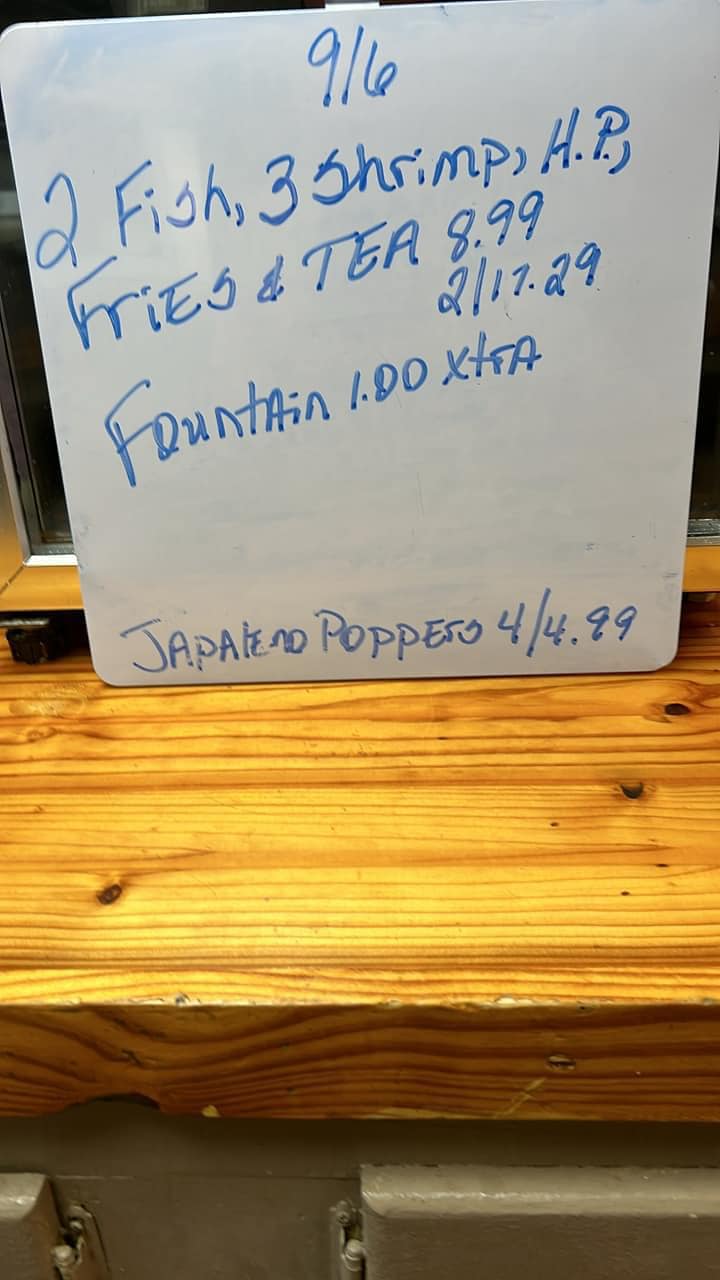 9/6
2 Fish, 3 Shrimp, H.P.,
FriES & TEA 8.99
2/17.29
FountAin 1.00 xtrA
JAPAlEnO POPPErs 4/4.99